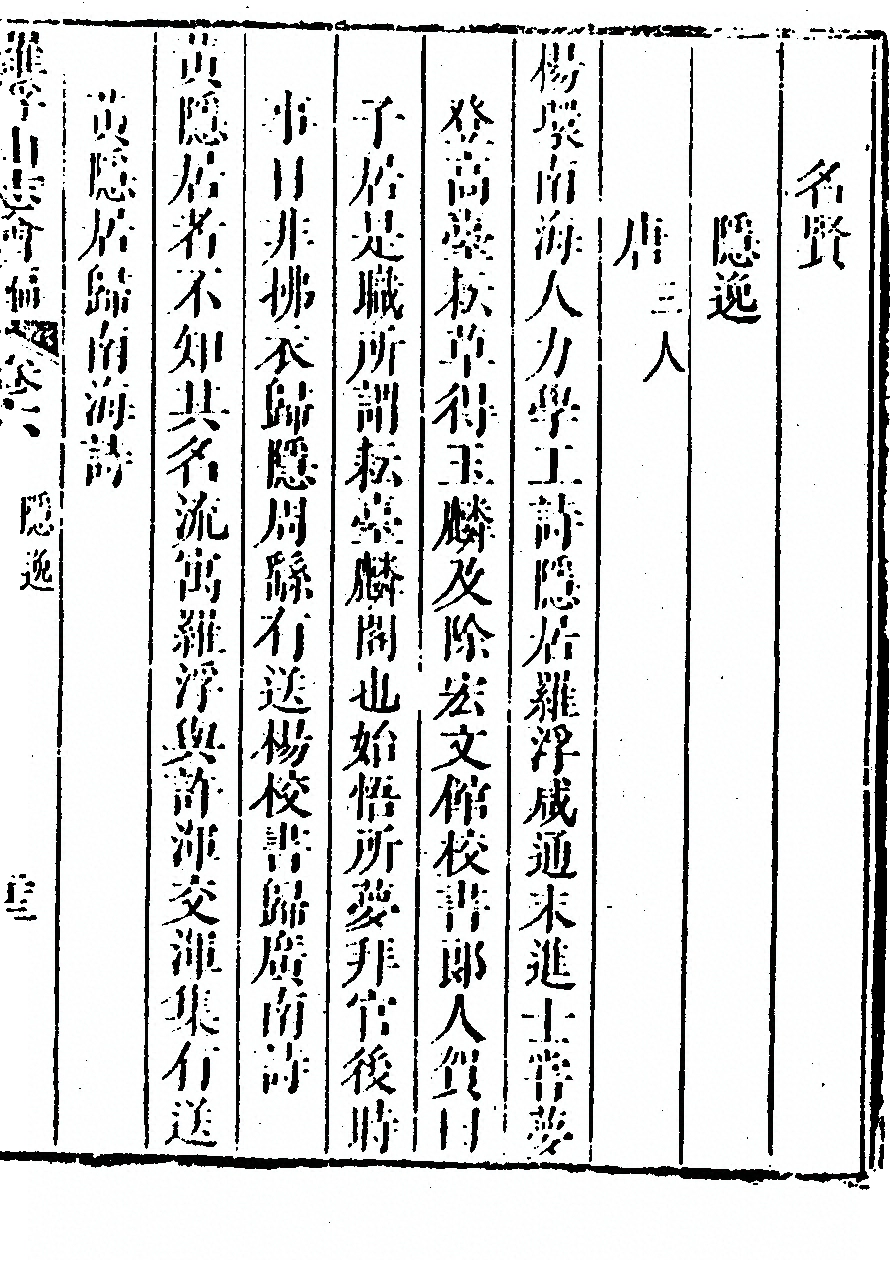 名賢
隱逸
唐三人
楊環南海人力學工詩隱居羅浮咸通末進士嘗夢
登高臺耘草得玉麟及除宏文館校書郎人賀曰
子居是職所謂耘臺麟閣也始悟所夢拜官後時
事日非拂衣歸隱周繇有送楊校書歸廣南詩
黃隱居者不知其名流寓羅浮與許渾交渾集有送
黃隱居歸南海詩
羅浮山志會編 卷六 隱逸